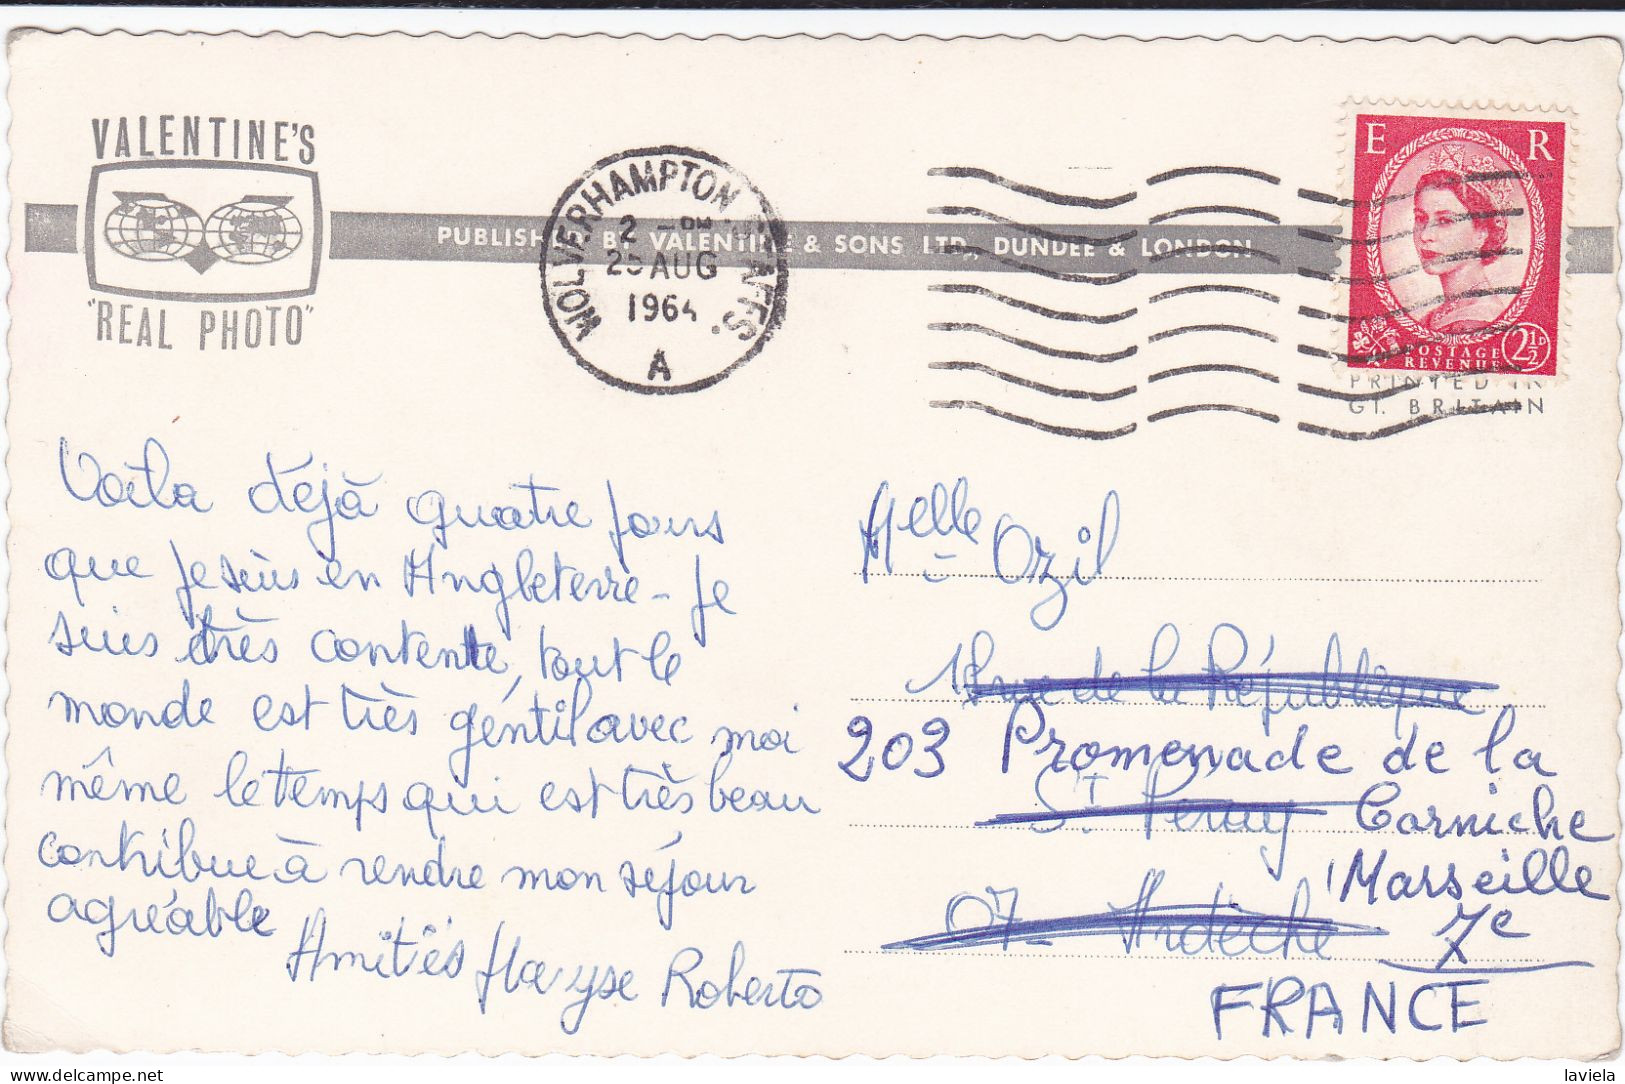 VALENTINE'S
"REAL PHOTO"
WOLVERHAMPTON STAFFS.
2 - PM
AUG
1964
A
PUBLISHED BY VALENTINE & SONS LTD, DUNDEE & LONDON
E R
POSTAGE
REVENUE
2½D
PRINTED IN
GT. BRITAIN
Voila déjà quatre jours
que je suis en Angleterre - je
suis très contente, tout le
monde est très géntil avec moi
même le temps qui est très beau
contribue à rendre mon séjour
agréable
Amitiés
Roberto
Melle Ozil
rue de la République
203 Promenade de la
St Peray Corniche
Marseille
07 - Ardèche 7e
FRANCE
laviela